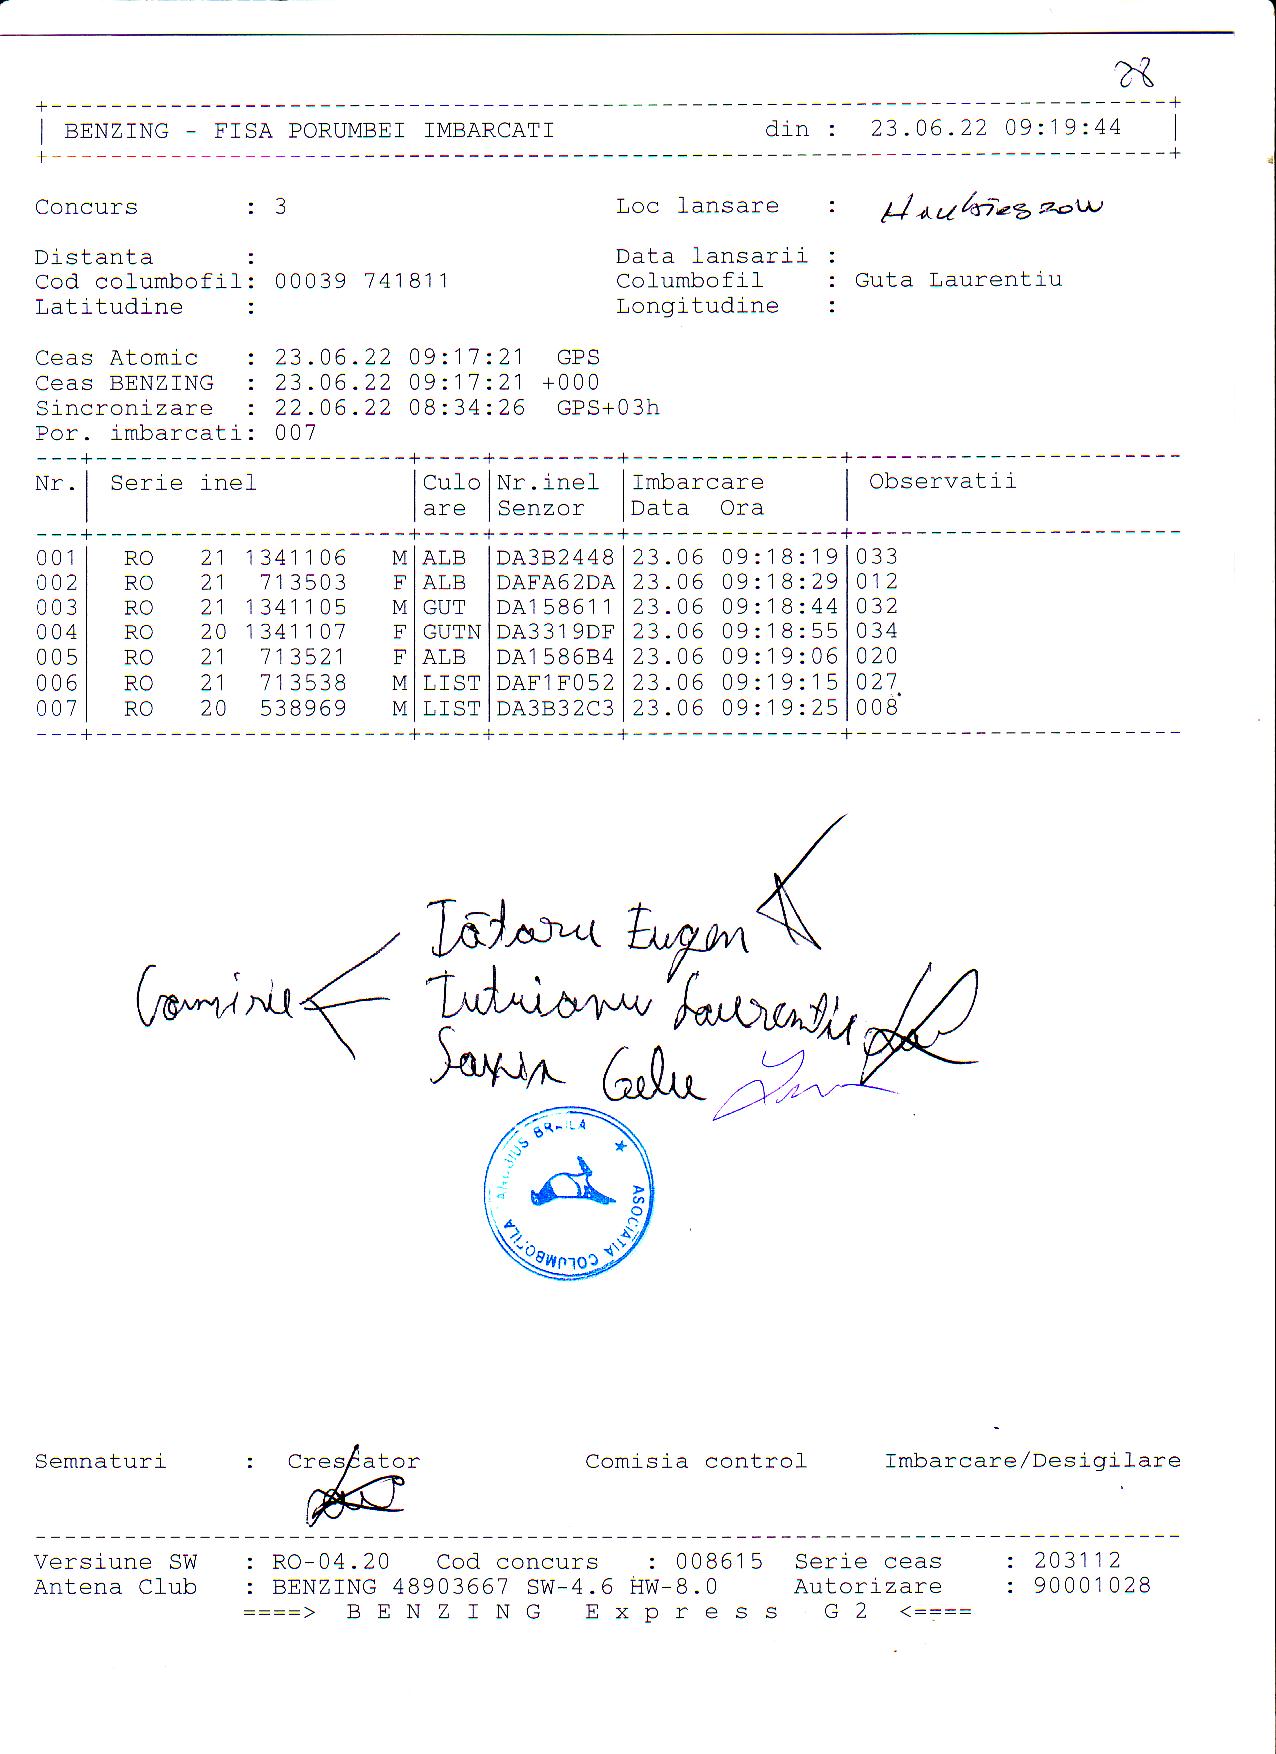 28
BENZING - FISA PORUMBEI IMBARCATI din : 23.06.22 09:19:44
Concurs : 3 Loc lansare :
Distanta : Data lansarii :
Cod columbofil: 00039 741811 Columbofil : Guta Laurentiu
Latitudine : Longitudine :
Ceas Atomic : 23.06.22 09:17:21 GPS
Ceas BENZING : 23.06.22 09:17:21 +000
Sincronizare : 22.06.22 08:34:26 GPS+03h
Por. imbarcati: 007
Nr. Serie inel Culo Nr.inel Imbarcare Observatii
are Senzor Data Ora
001 RO 21 1341106 M ALB DA3B2448 23.06 09:18:19 033
002 RO 21 713503 F ALB DAFA62DA 23.06 09:18:29 012
003 RO 21 1341105 M GUT DA158611 23.06 09:18:44 032
004 RO 20 1341107 F GUTN DA3319DF 23.06 09:18:55 034
005 RO 21 713521 F ALB DA1586B4 23.06 09:19:06 020
006 RO 21 713538 M LIST DAF1F052 23.06 09:19:15 027
007 RO 20 538969 M LIST DA3B32C3 23.06 09:19:25 008
Tătaru Eugen
Comisie
Laurentiu
Gelu
ASOCIATIA COLUMBOFILA BRAILA
Semnaturi : Crescator Comisia control Imbarcare/Desigilare
Versiune SW : RO-04.20 Cod concurs : 008615 Serie ceas : 203112
Antena Club : BENZING 48903667 SW-4.6 HW-8.0 Autorizare : 90001028
====> B E N Z I N G E x p r e s s G 2 <====